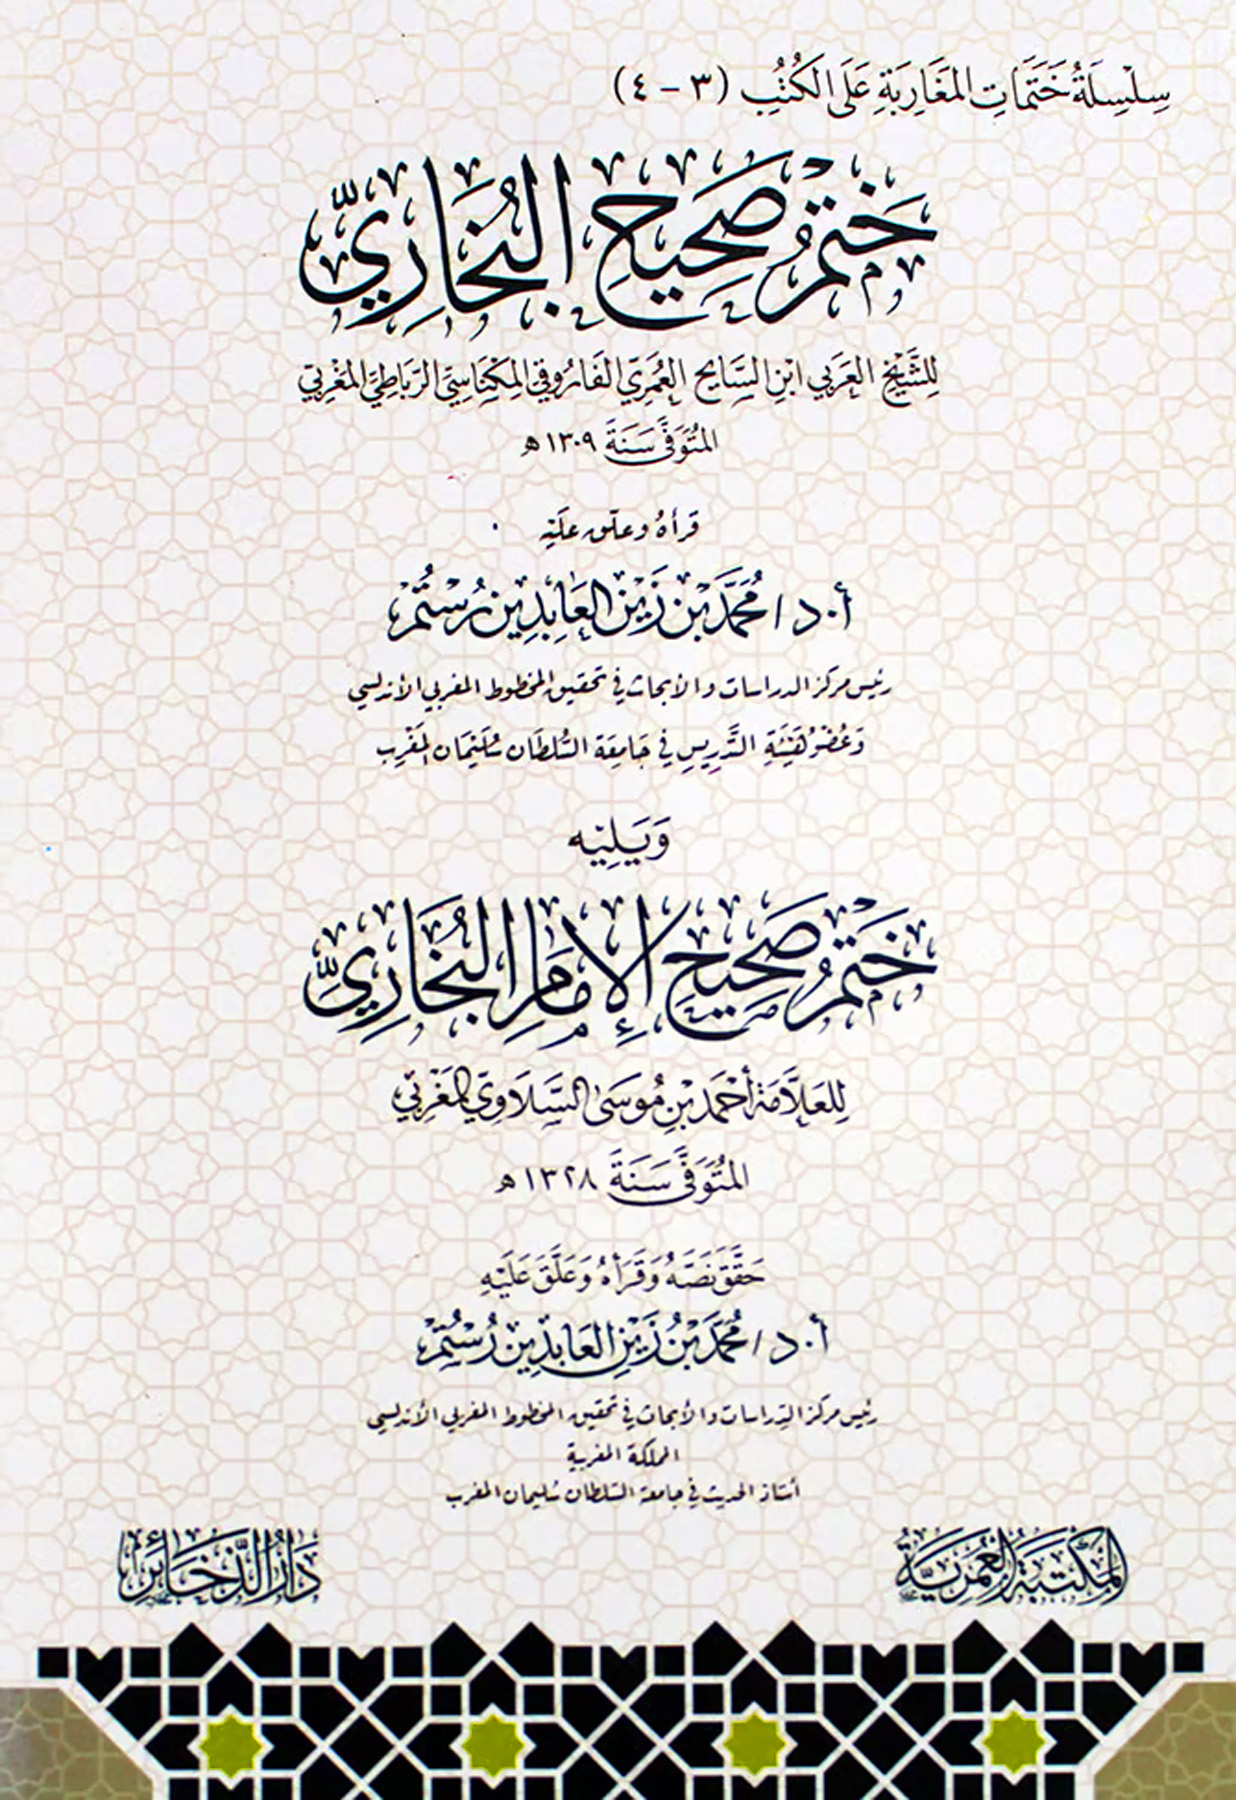 سِلْسِلَةُ خَتَمَاتِ المَغَارِبَةِ عَلَى الكُتُبِ (٣ - ٤)
خَتْمُ صَحِيحِ البُخَارِيِّ
لِلشَّيْخِ العَرَبِي ابْنِ السَّايِح العُمَرِيّ الفَارُوقِي المِكْنَاسِيِّ الرِّبَاطِيِّ المَغْرِبِيّ
المُتَوَفَّى سَنَةَ ١٣٠٩ هـ
قرأهُ وعلّق عليْه
أ.د/ مُحَمَّد بْن زَيْن العَابِدِين رُسْتُمْ
رئيس مركز الدراسات والأبحاث في تحقيق المخطوط المغربي الأندلسي
وَعُضْو هَيْئَةِ التَّدْرِيسِ فِي جَامِعَة السُّلطَان سُلَيْمَان المَغْرِب
وَيَلِيْه
خَتْمُ صَحِيْحِ الإِمَامِ البُخَارِيِّ
لِلعَلَّامَة أَحْمَد بْنِ مُوسَى السَّلَاوِيّ المَغْرِبِيّ
المُتَوَفَّى سَنَةَ ١٣٢٨ هـ
حَقَّقَ نَصَّهُ وَقَرَأَهُ وَعَلَّقَ عَلَيْهِ
أ.د/ مُحَمَّد بْنُ زَيْنِ العَابِدِين رُسْتُمْ
رئيس مركز الدراسات والأبحاث في تحقيق المخطوط المغربي الأندلسي
المملكة المغربية
أستاذ الحديث في جامعة السّلطان سُليمان المغرب
المَكْتَبَةُ العُمَرِيَّة
دَارُ الذَّخَائِر